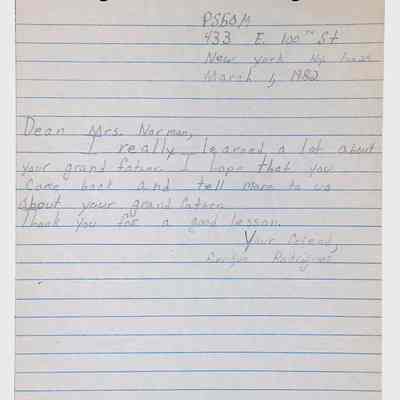 PS50M
433 E. 100TH St
New york Ny
March 1, 1982
Dear Mrs. Norman,
I really learned a lot about
your grand father I hope that you
Come back and tell more to us
about your grand father.
Thank you for a good lesson.
Your friend,
Rodriguez